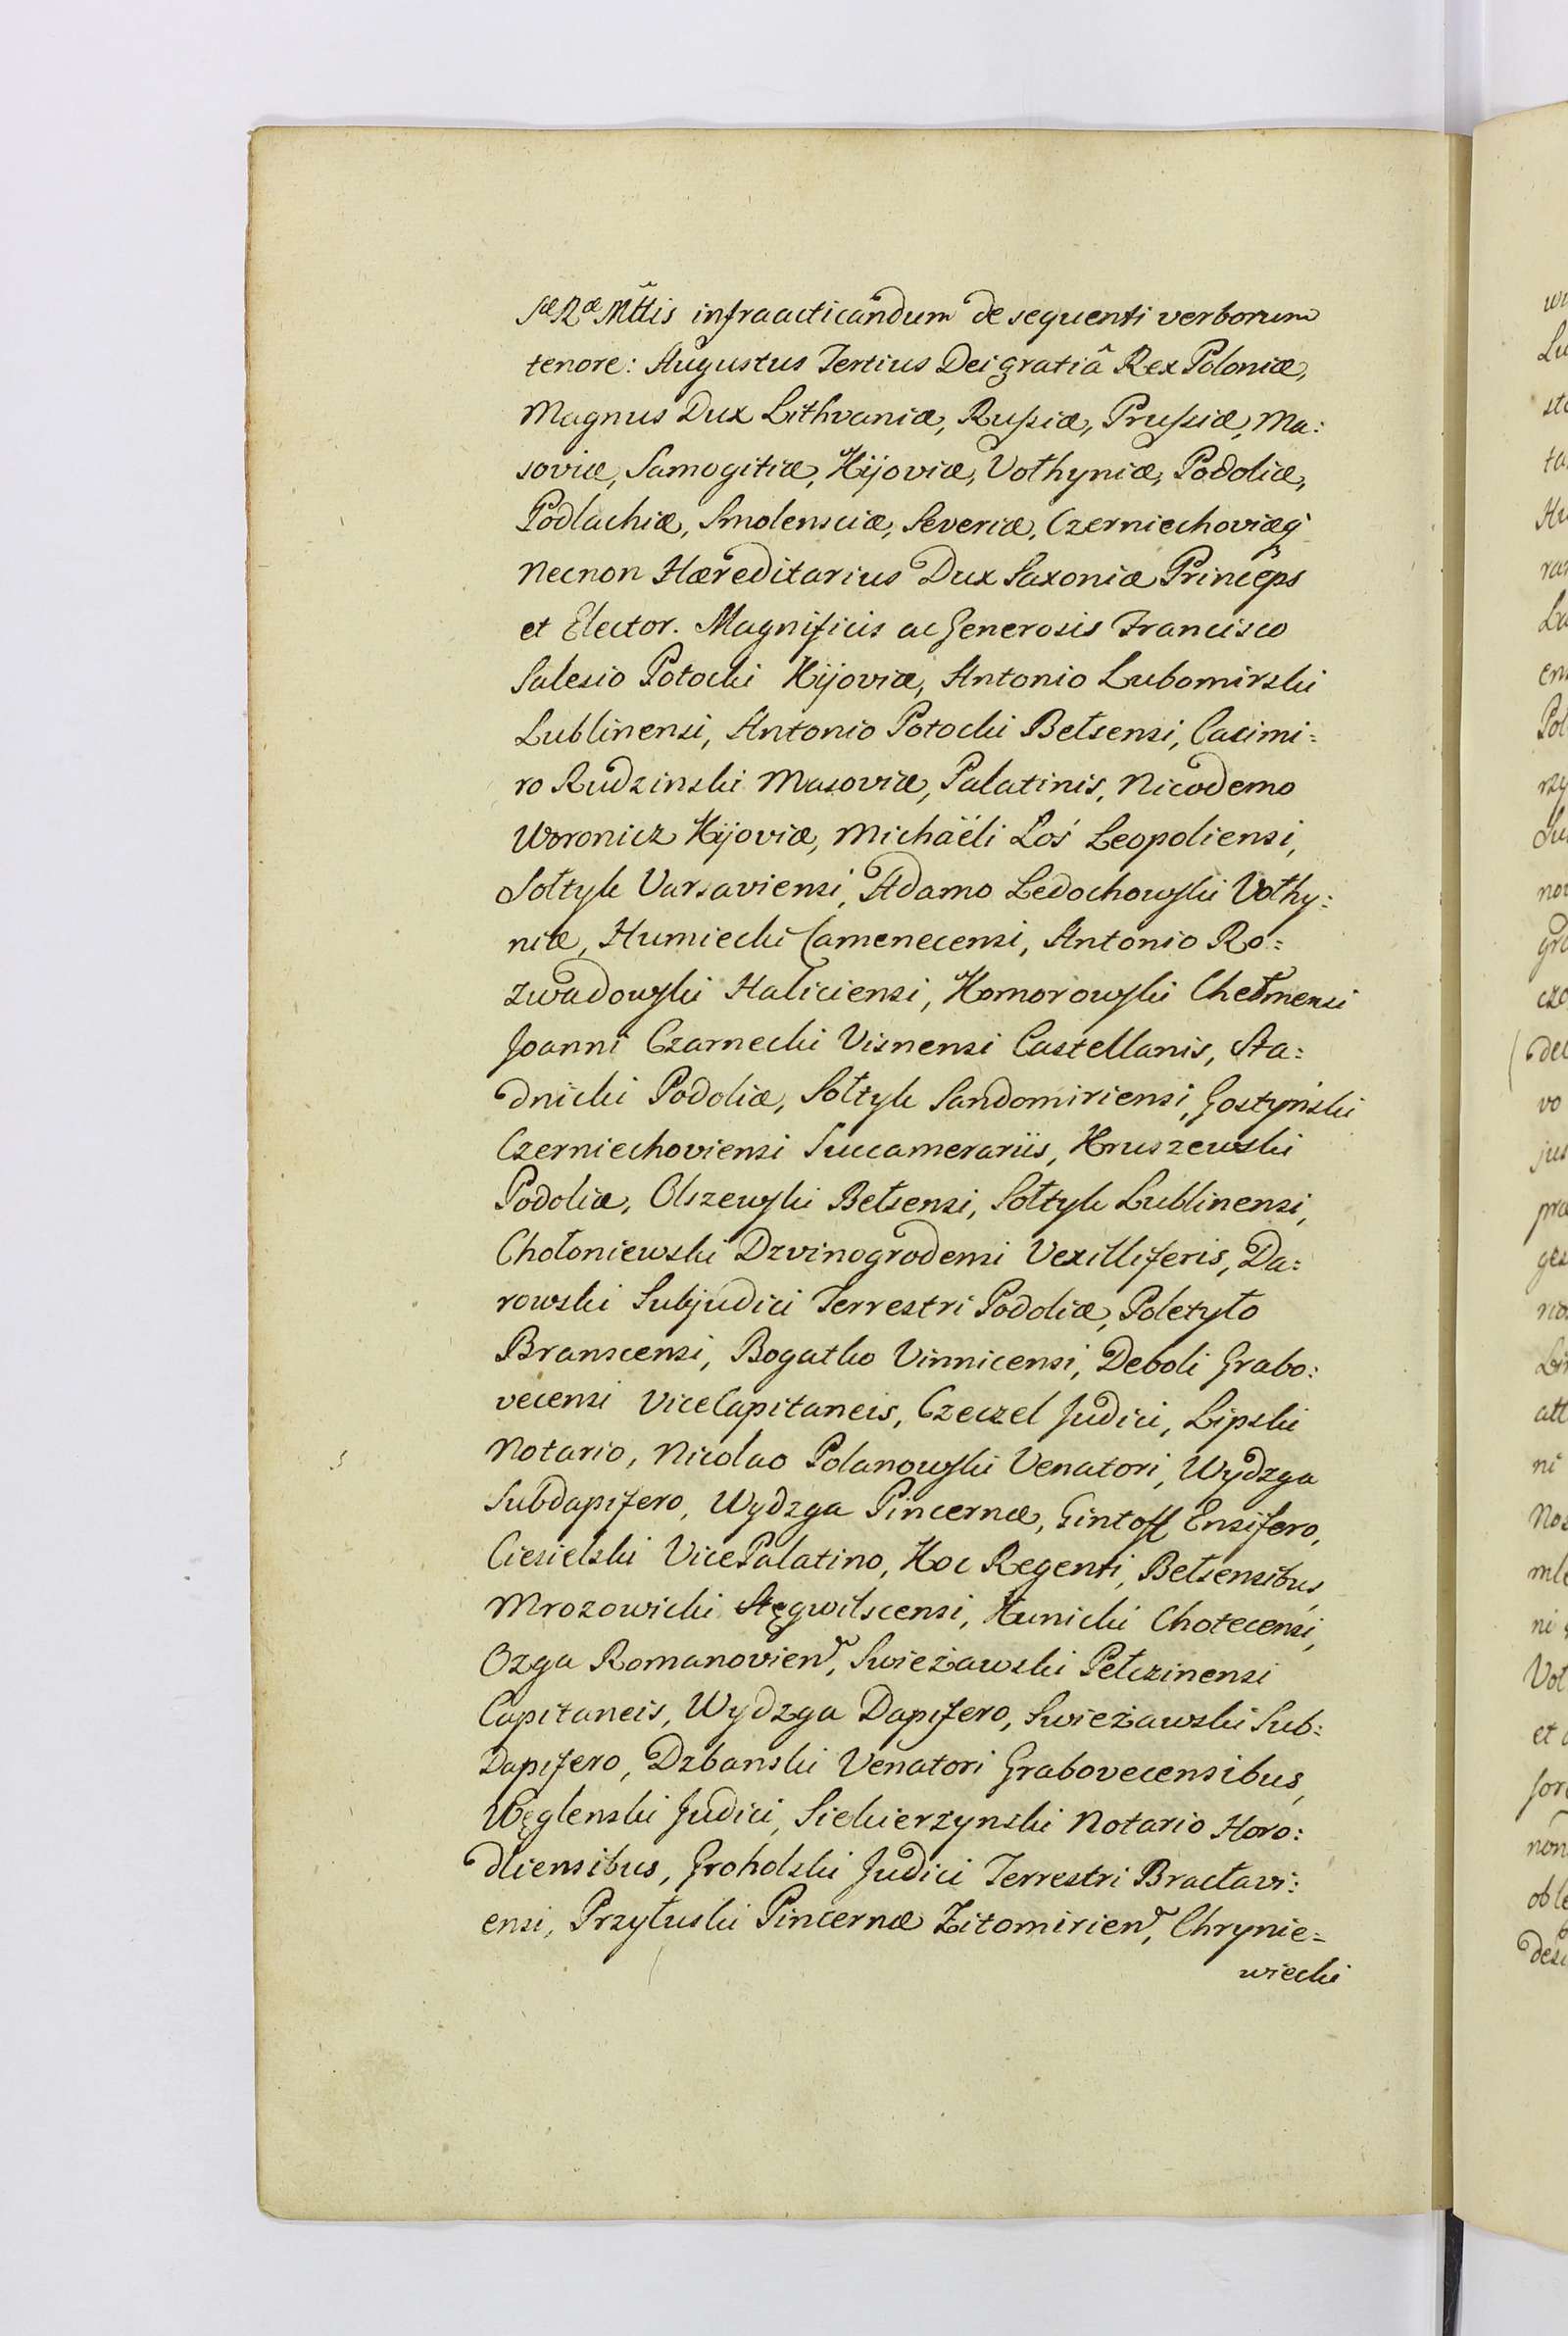 Sæ Ræ Mttis infraacticandum de sequenti verborum
tenore: Augustus Tertius Dei gratiâ Rex Poloniæ,
Magnus Dux Lithvaniæ, Russiæ, Prussiæ, Ma:
soviæ, Samogitiæ, Kijoviæ, Vołhyniæ, Podoliæ,
Podlachiæ, Smolensciæ, Severiæ, Czerniechoviæq3
Necnon Hæreditarius Dux Saxoniæ Princeps
et Elector. Magnificis ac Generosis Francisco
Salesio Potocki Kijoviæ, Antonio Lubomirski
Lublinensi, Antonio Potocki Bełzensi, Casimi=
ro Rudzinski Masoviæ, Palatinis, Nicodemo
Woronicz Kijoviæ, Michäéli Łoś Leopoliensi,
Sołtyk Varsaviensi, Adamo Ledochowski Vołhy:
niæ, Humiecki Camenecensi, Antonio Ro=
zwadowski Haliciensi, Komorowski Chełmensi
Joanni Czarnecki Visnensi Castellanis, Sta=
dnicki Podoliæ, Sołtyk Sandomiriensi, Gostyński
Czerniechoviensi Succamerariis, Kruszewski
Podoliæ, Olszewski Bełzensi, Sołtyk Lublinensi,
Chołoniewski Dzvinogrodensi Vexilliferis, Da=
rowski Subjudici Terrestri Podoliæ, Poletyło
Branscensi, Bogatko Vinnicensi, Deboli Grabo:
vecensi ViceCapitaneis, Czeczel Judici, Lipski
Notario, Nicolao Polanowski Venatori, Wydzga
Subdapifero, Wydzga Pincernæ, Gintoff Ensifero,
Ciesielski VicePalatino, Hoc Regenti, Bełzensibus,
Mrozowicki Stęgwilscensi, Kunicki Chotecensi,
Ozga Romanovien, Swieżawski Pełczinensi
Capitaneis, Wydzga Dapifero, Swieżawski Sub:
Dapifero, Dzbanski Venatori Grabovecensibus,
Węglenski Judici, Siekierzynski Notario Horo:
dliensibus, Groholski Judici Terrestri Bracłavi:
ensi, Przyłuski Pincernæ Zitomirien, Chrynie=
wiecki